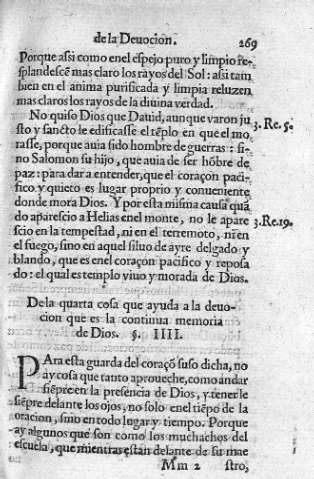 de la Deuocion. 269
Porque assi como en el espejo puro y limpio re-
splandescẽ mas claro los rayos del Sol: assi tam
bien en el anima purificada y limpia reluzen
mas claros los rayos de la diuina verdad.
No quiso Dios que Dauid, aunque varon ju
sto y sancto le edificasse el tẽplo en que el mo 3. Re. 5.
rasse, porque auia sido hombre de guerras: si-
no Salomon su hijo, que auia de ser hõbre de
paz: para dar a entender, que el coraçon paci-
fico y quieto es lugar proprio y conueniente
donde mora Dios. Y por esta misma causa quã
do aparescio a Helias en el monte, no le apare 3. Re. 19.
scio en la tempestad, ni en el terremoto, ni en
el fuego, sino en aquel siluo de ayre delgado y
blando, que es en el coraçon pacifico y reposa
do: el qual es templo viuo y morada de Dios.
De la quarta cosa que ayuda a la deuo-
cion que es la continua memoria
de Dios. §. IIII.
PAra esta guarda del coraçõ suso dicha, no
ay cosa que tanto aproueche, como andar
siẽpre en la presencia de Dios, y tenerle
siẽpre delante los ojos, no solo en el tiẽpo de la
oracion, sino en todo lugar y tiempo. Porque
ay algunos que son como los muchachos del
escuela, que mientras están delante de su mae
Mm 2 stro,